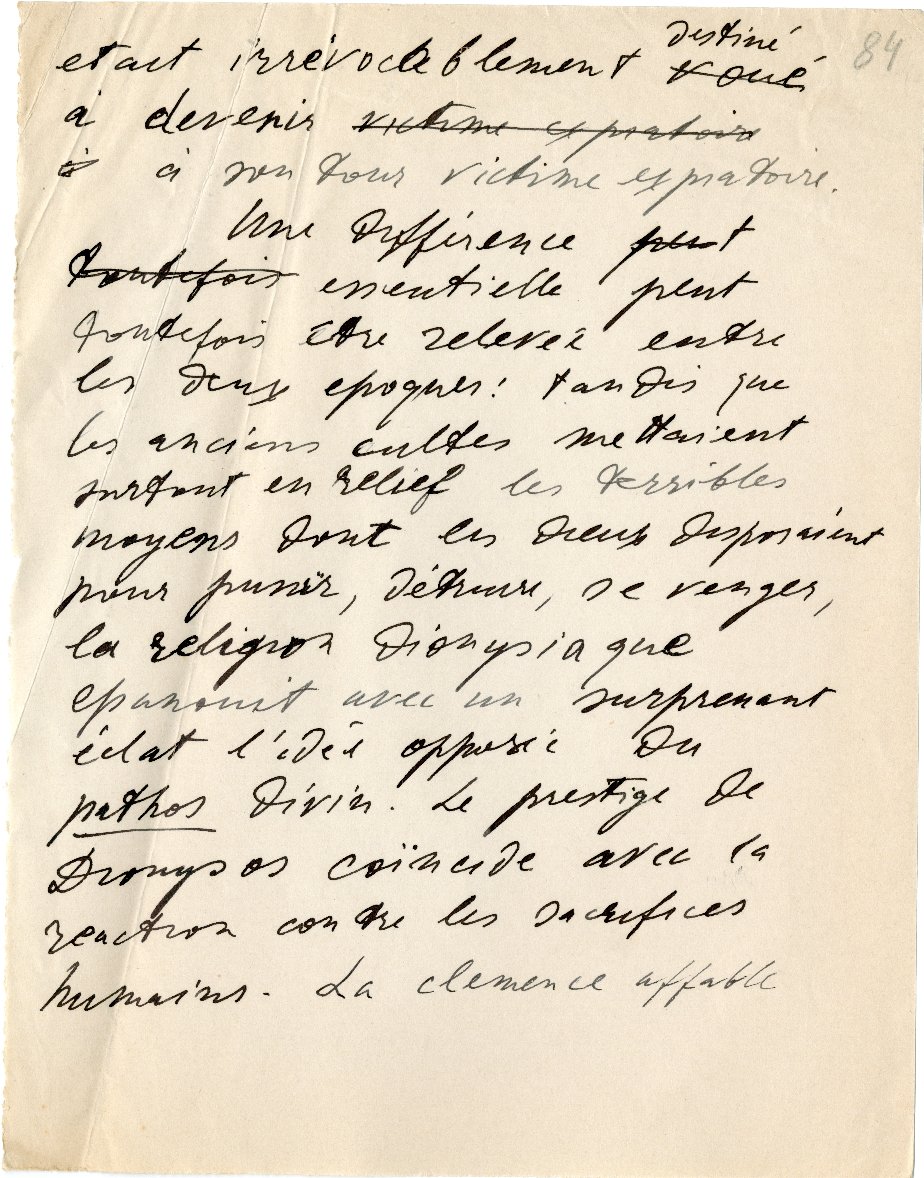 84
destiné
etait irrévocablement voué
à devenir victime expiatoire
à à son tour victime expiatoire.
Une différence peut
toutefois essentielle peut
toutefois être relevée entre
les deux epoques: tandis que
les anciens cultes mettaient
surtout en relief les terribles
moyens dont les dieux disposaient
pour punir, détruire, se venger,
la religion dionysiaque
epanouit avec un surprenant
éclat l'idée opposée du
pathos divin. Le prestige de
Dionysos coïncide avec la
reaction contre les sacrifices
humains. La clemence affable